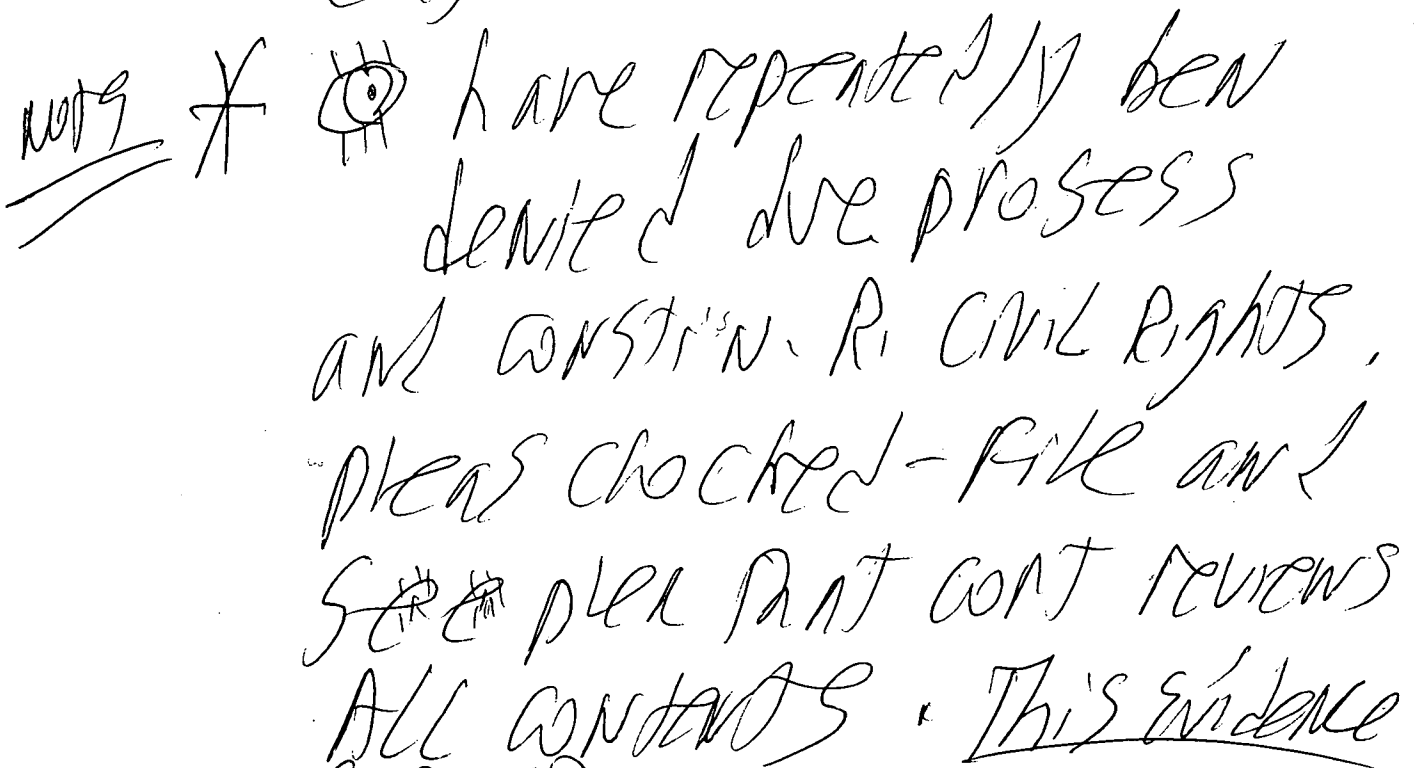 NOTE * have repeatedly ben
denied due prosess
and consti'sn. R. CIVIL Rights.
pleas chocked-File and
See plea Pant cort reviews
ALL contents. This Evidence